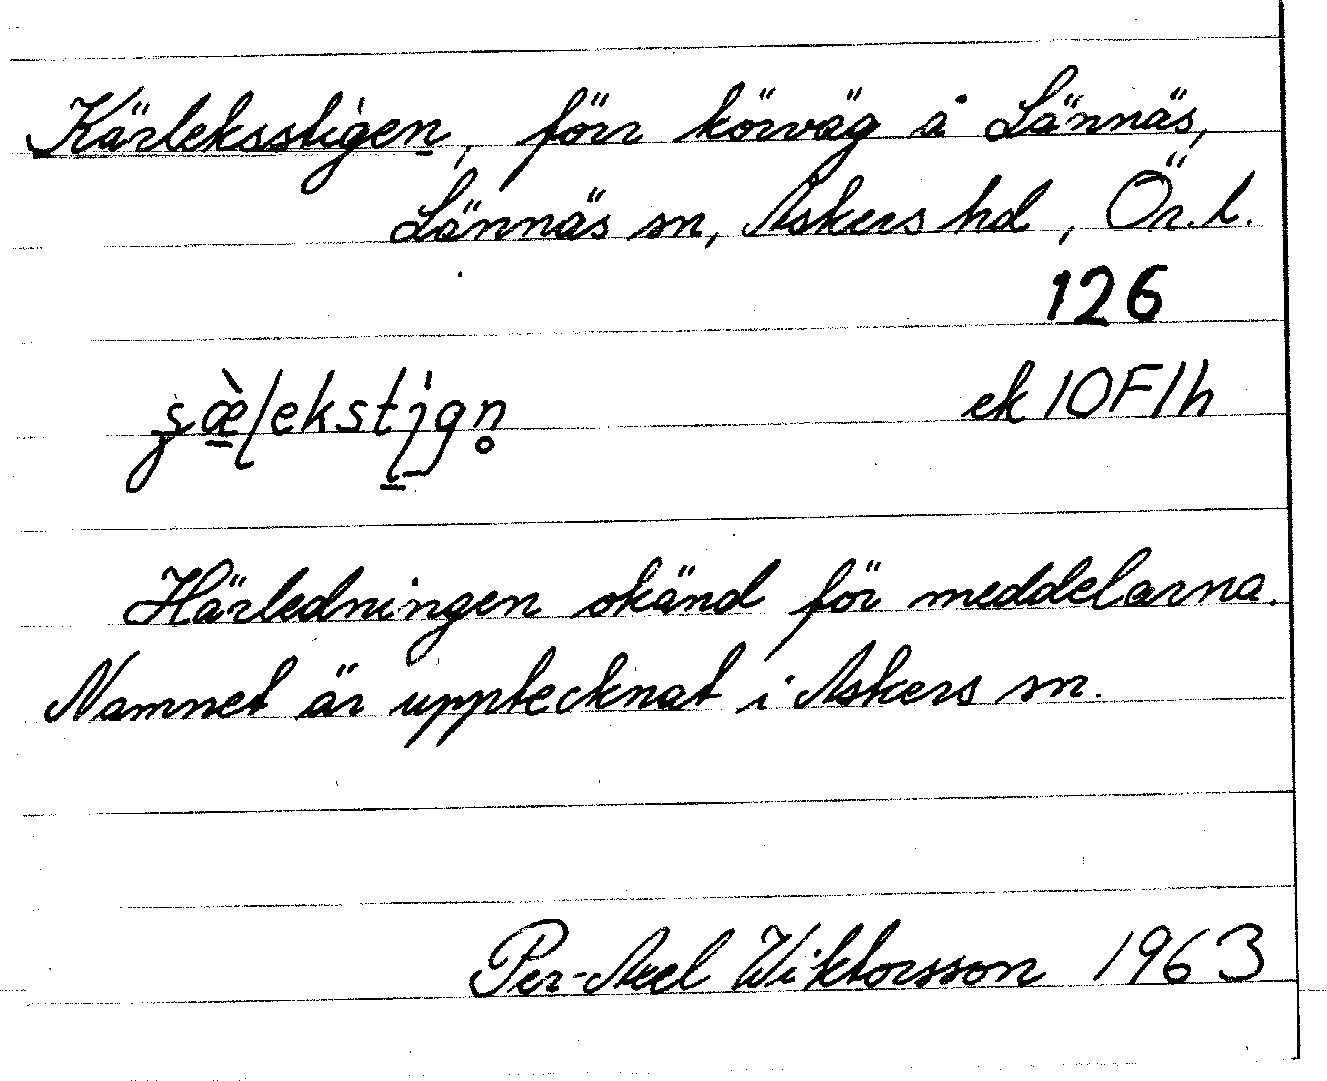 Kärleksstigen, förr körväg å Lännäs,
Lännäs sn, Askers hd, Ör. l.
126
ek 10F1h
Härledningen okänd för meddelarna.
Namnet är upptecknat i Askers sn.
Per-Axel Wiktorsson 1963